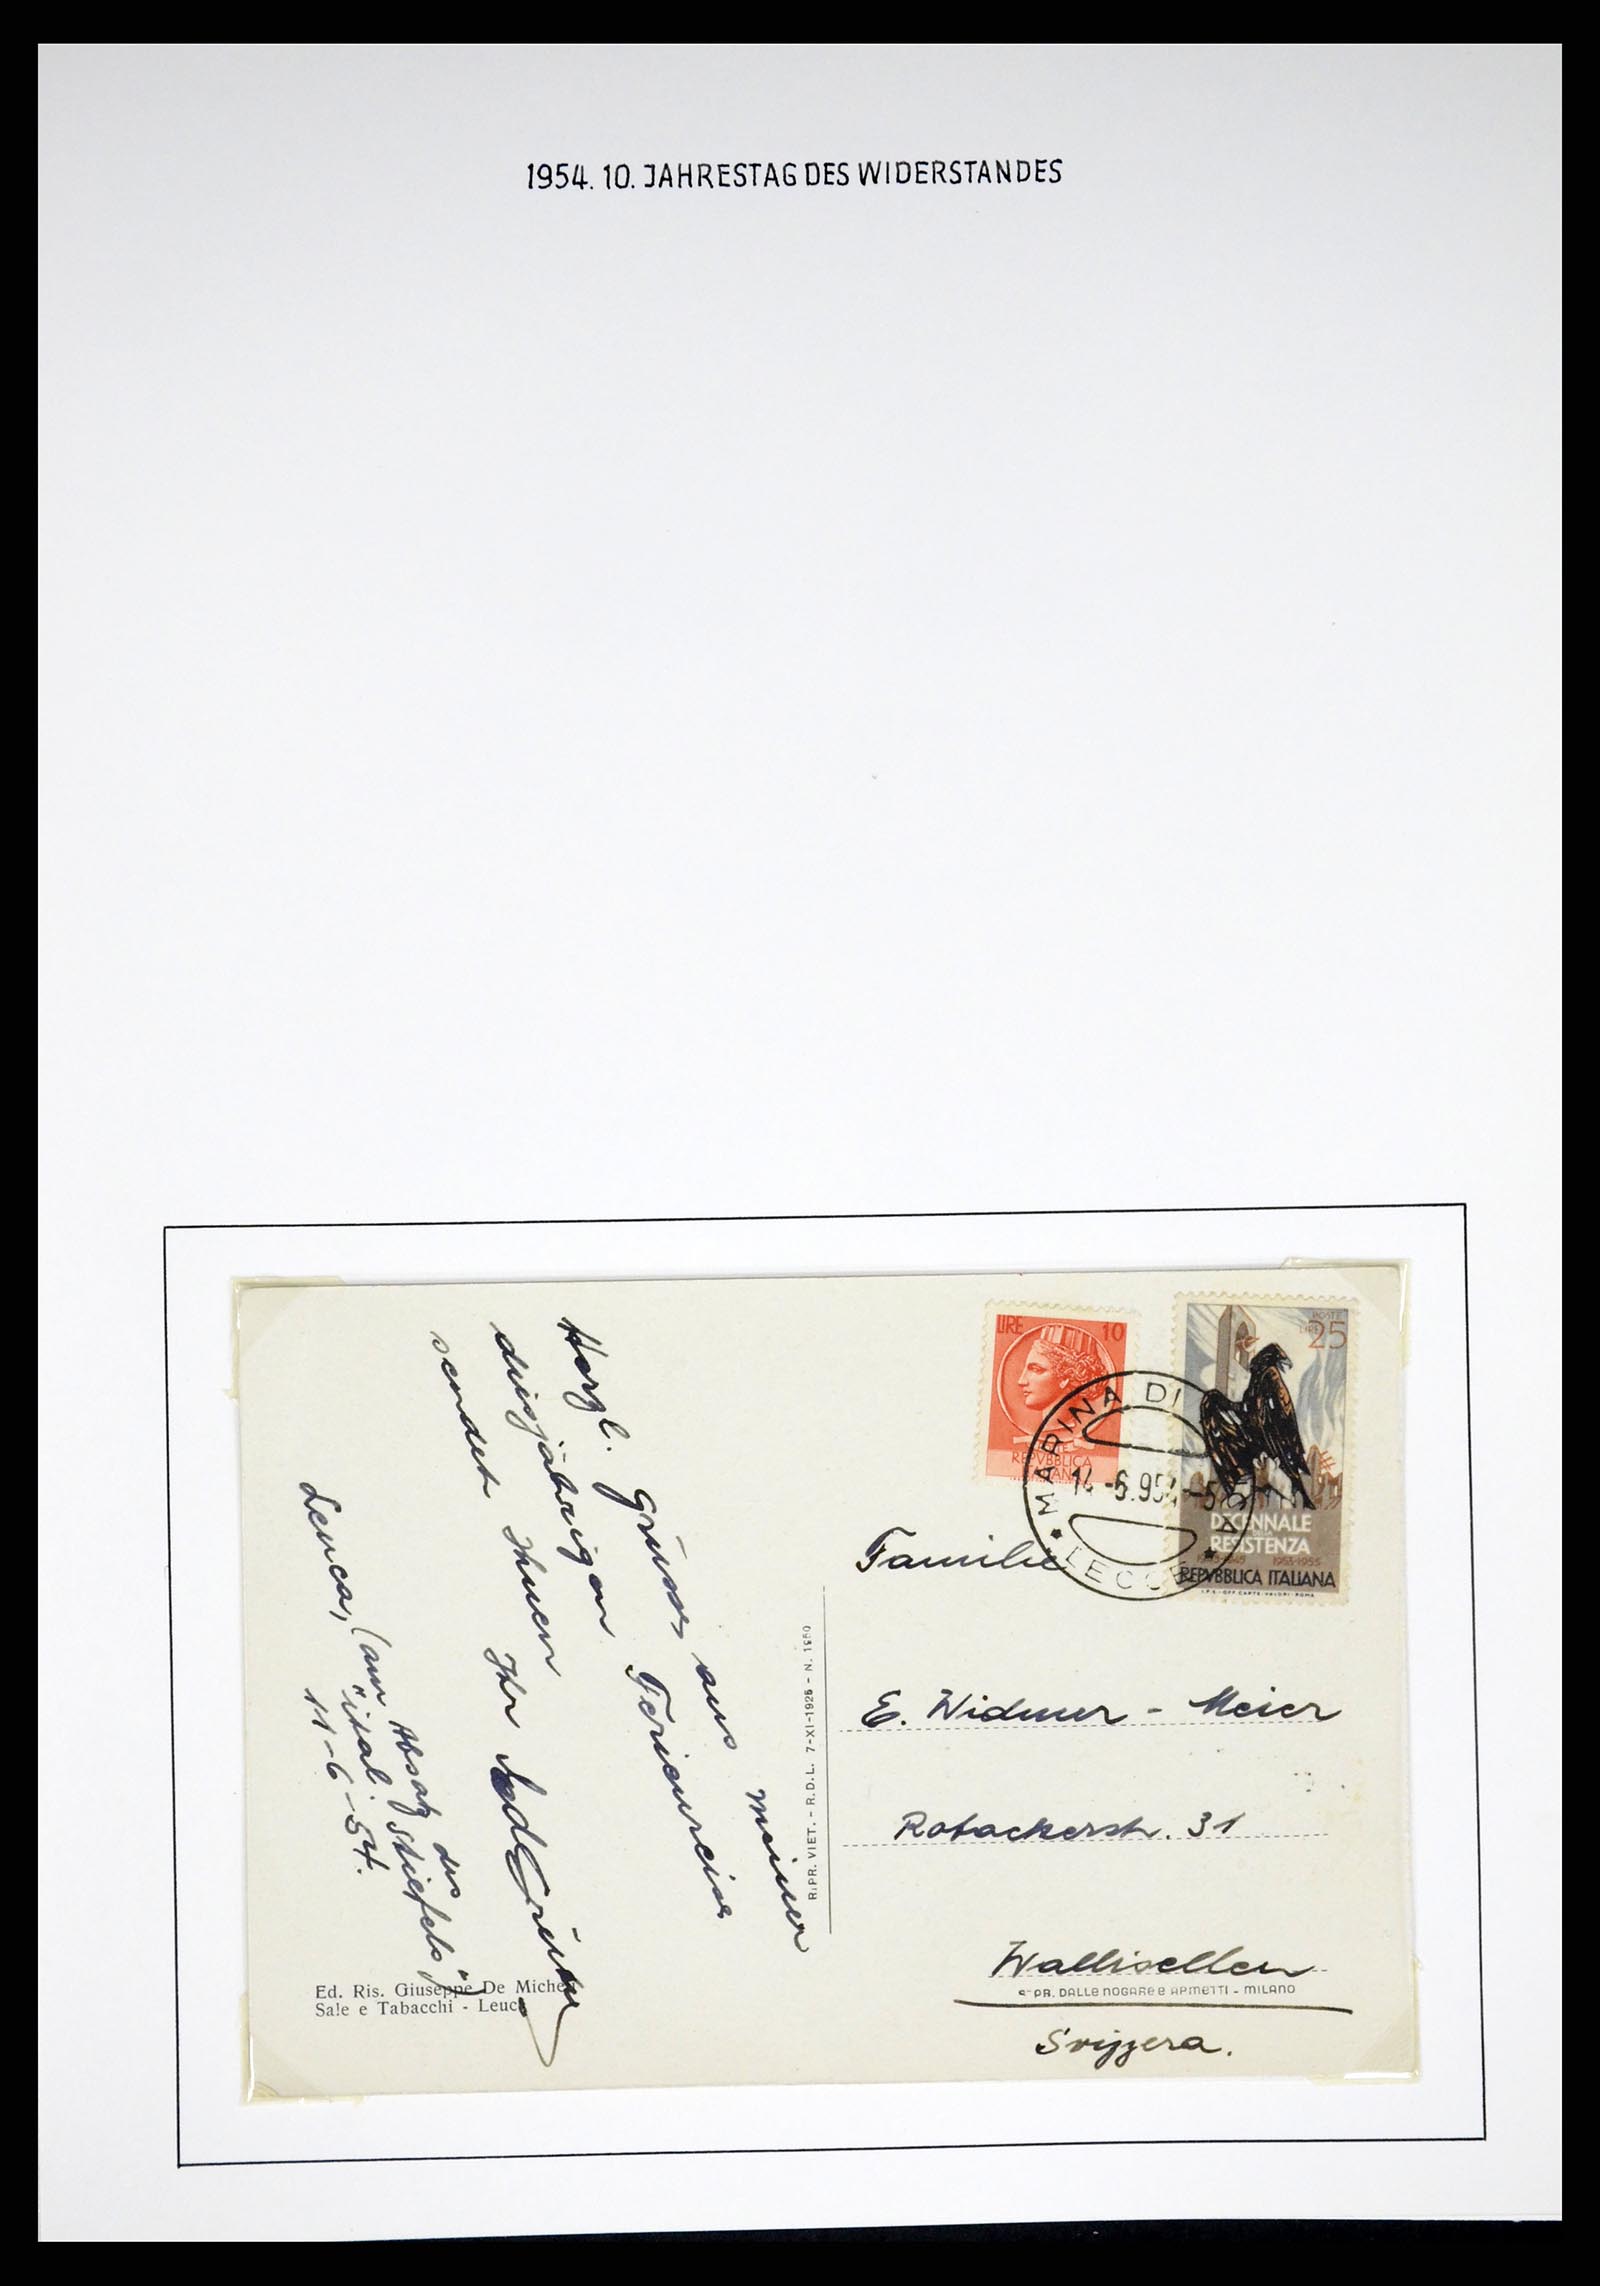 1954. 10. JAHRESTAG DES WIDERSTANDES
LIRE 10
REPVBBLICA
ITALIANA
POSTE
LIRE 25
DECENNALE
DELLA
RESISTENZA
1943-1945 1953-1955
REPVBBLICA ITALIANA
I.P.S.-OFF. CARTE-VALORI-ROMA
MARINA DI
14-6.954-5
* LECCE *
Herzl. Grüsse aus meiner
diesjährigen Ferienreise
sendet Ihnen Ihr
Leuca, (am Absatz des
"ital. Stiefels")
11-6-54.
Familie
E. Widmer - Meier
Rotackerstr. 31
Wallisellen
Svizzera.
RIPR. VIET. - R.D.L. 7-XI-1925 - N. 1950
Ed. Ris. Giuseppe De Micheli
Sale e Tabacchi - Leuca
PR. DALLE NOGARE E ARMETTI - MILANO